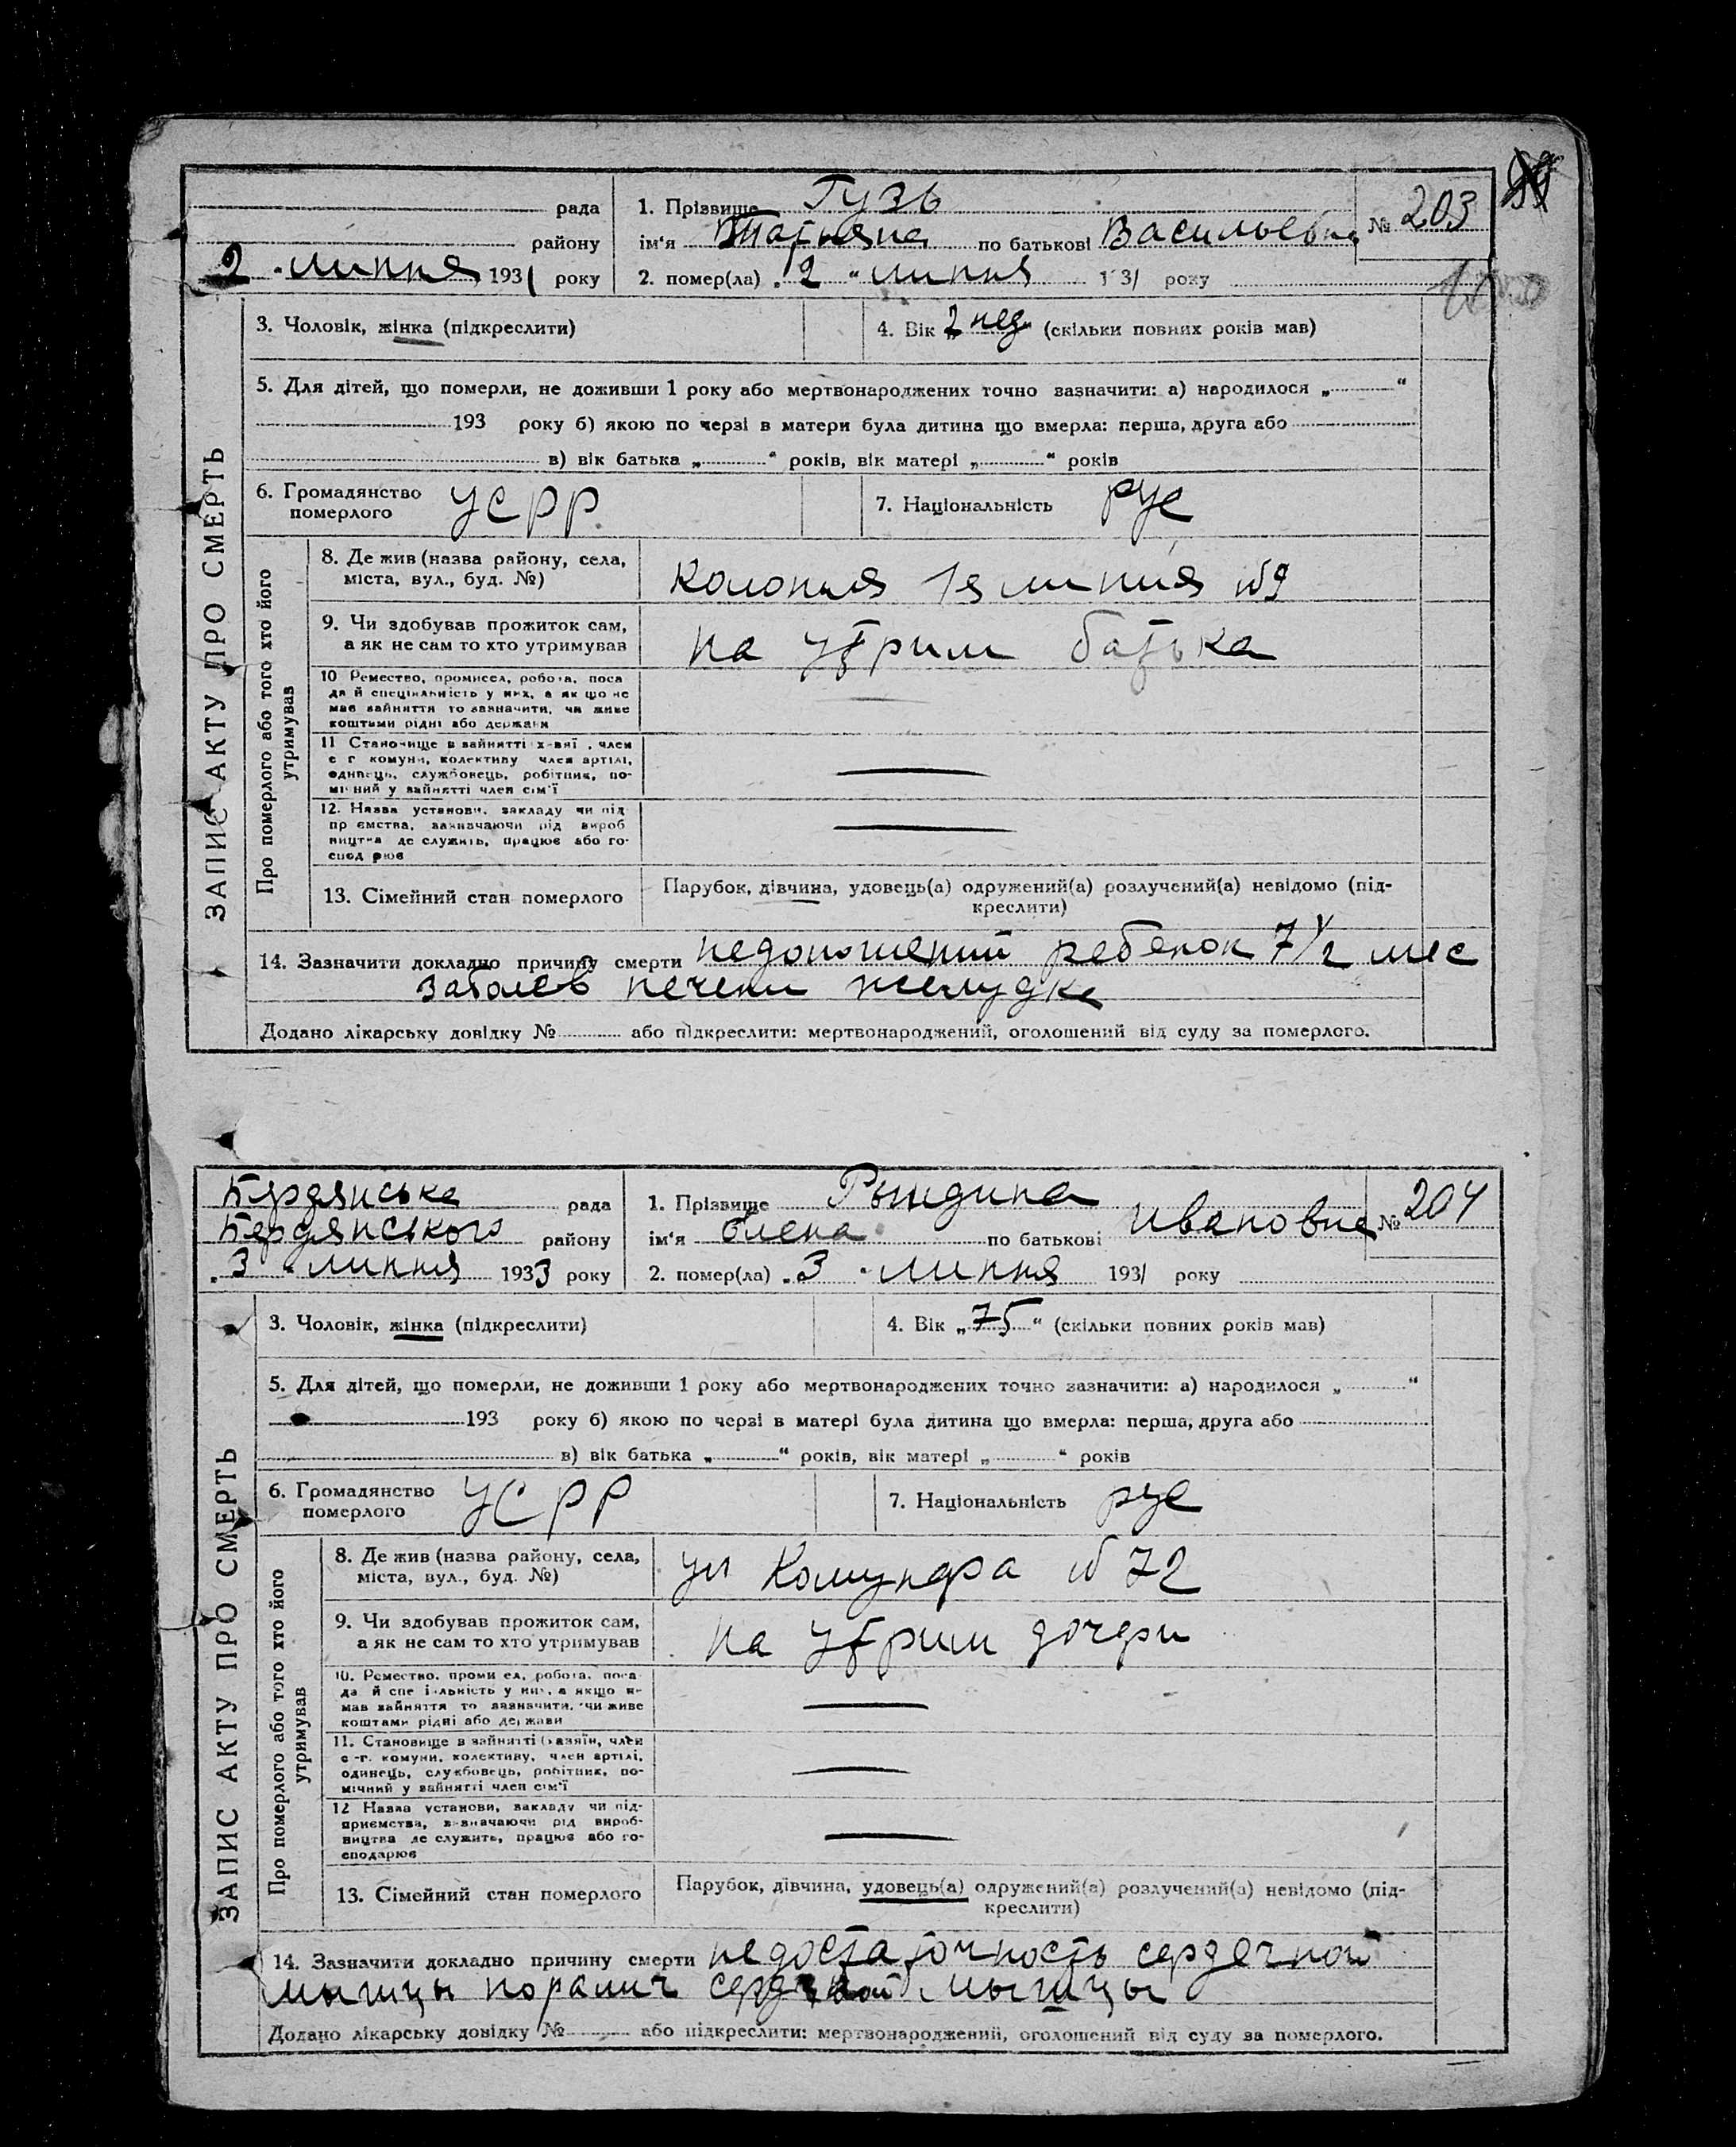 рада 1. Прізвище Гузь № 203
району ім'я Татьяна по батькові Васильевна
2 липня 1931 року 2. помер(ла) „2" липня 1931 року
3. Чоловік, жінка (підкреслити) 4. Вік „2 нед" (скільки повних років мав)
5. Для дітей, що померли, не доживши 1 року або мертвонароджених точно зазначити: а) народилося „ "
193 року б) якою по черзі в матери була дитина що вмерла: перша, друга або
в) вік батька „ " років, вік матері „ " років
6. Громадянство померлого УСРР 7. Національність рус
ЗАПИС АКТУ ПРО СМЕРТЬ
Про померлого або того хто його утримував
8. Де жив (назва району, села,
міста, вул., буд. №)
Колония 1я линия №9
9. Чи здобував прожиток сам,
а як не сам то хто утримував
на утрим батька
10 Ремество, промисел, робота, поса
да й спеціяльність у них, а як що не
має зайняття то зазначити, чи живе
коштами рідні або держави
11 Становище в зайнятті х-зяї , член
с г комуни, колективу член артілі,
одинець, службовець, робітник, по-
мічний у зайнятті член сім'ї
12. Назва установи, закладу чи під
пр ємства, зазначаючи рід вироб
ництва де служить, працює або го-
спод рює
13. Сімейний стан померлого
Парубок, дівчина, удовець(а) одружений(а) розлучений(а) невідомо (під-
креслити)
14. Зазначити докладно причину смерти недоношений ребенок 7 1/2 мес
заболев печени желудка
Додано лікарську довідку № або підкреслити: мертвонароджений, оголошений від суду за померлого.
Бердянська рада 1. Прізвище Рындина № 204
Бердянського району ім'я Олена по батькові Ивановна
„3" липня 1933 року 2. помер(ла) „3" липня 1931 року
3. Чоловік, жінка (підкреслити) 4. Вік „75" (скільки повних років мав)
5. Для дітей, що померли, не доживши 1 року або мертвонароджених точно зазначити: а) народилося „ "
193 року б) якою по черзі в матері була дитина що вмерла: перша, друга або
в) вік батька „ " років, вік матері „ " років
6. Громадянство померлого УСРР 7. Національність рус
ЗАПИС АКТУ ПРО СМЕРТЬ
Про померлого або того хто його утримував
8. Де жив (назва району, села,
міста, вул., буд. №)
ул Комунара №72
9. Чи здобував прожиток сам,
а як не сам то хто утримував
на утрим дочери
10. Ремество, проми ел, робота, поса
да й спе іяльність у них, а якщо н-
мав зайняття то зазначити, чи живе
коштами рідні або держави
11. Становище в зайнятті (хазяїн, член
с-г. комуни, колективу, член артілі,
одинець, службовець, робітник, по-
мічний у зайнятті член сім'ї
12 Назва установи, закладу чи під-
приємства, зазначаючи рід вироб-
ництва де служить, працює або го-
сподарює
13. Сімейний стан померлого
Парубок, дівчина, удовець(а) одружений(а) розлучений(а) невідомо (під-
креслити)
14. Зазначити докладно причину смерти недостаточность сердечной
мышцы поралич сердечной мышцы
Додано лікарську довідку № або підкреслити: мертвонароджений, оголошений від суду за померлого.